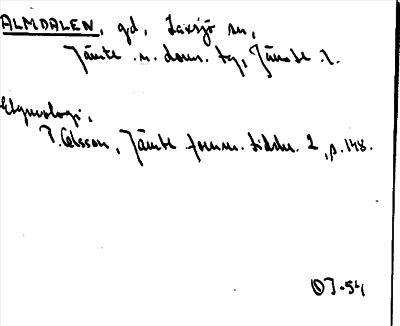 ALMDALEN, gd, Laxsjö sn,
Jämtl. n. doms. tg, Jämtl. l.
Etymologi,
P. Olsson, Jämtl. fornm. tidskr. 2, s. 148.
OJ-54